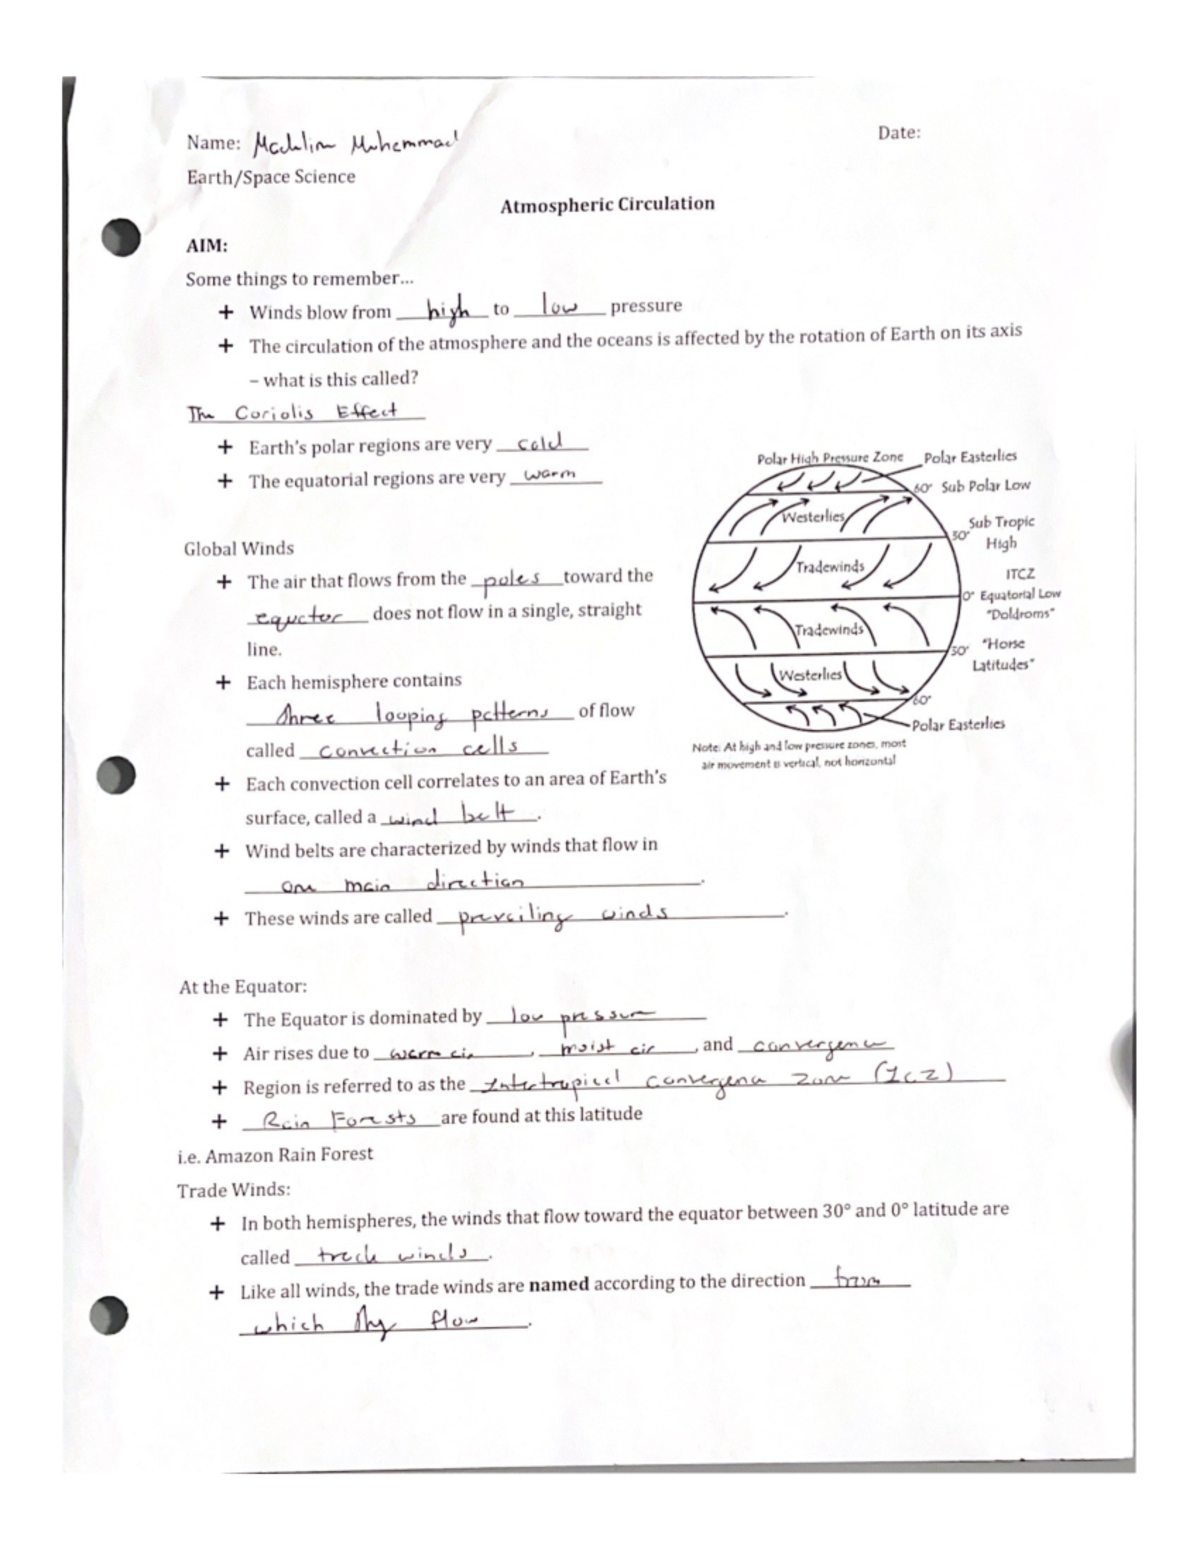 Name: Madulin Muhammad
Date:
Earth/Space Science
Atmospheric Circulation
AIM:
Some things to remember...
+ Winds blow from high to low pressure
+ The circulation of the atmosphere and the oceans is affected by the rotation of Earth on its axis
– what is this called?
The Coriolis Effect
+ Earth's polar regions are very cold
+ The equatorial regions are very warm
Global Winds
+ The air that flows from the poles toward the
equator does not flow in a single, straight
line.
+ Each hemisphere contains
three looping patterns of flow
called convection cells
+ Each convection cell correlates to an area of Earth's
surface, called a wind belt.
+ Wind belts are characterized by winds that flow in
one main direction.
+ These winds are called prevailing winds.
Polar High Pressure Zone
Polar Easterlies
60° Sub Polar Low
Westerlies
Sub Tropic
30°
High
Tradewinds
ITCZ
0° Equatorial Low
"Doldroms"
Tradewinds
30°
"Horse
Latitudes"
Westerlies
60°
Polar Easterlies
Note: At high and low pressure zones, most
air movement is vertical, not horizontal
At the Equator:
+ The Equator is dominated by low pressure
+ Air rises due to warm air, moist air, and convergence
+ Region is referred to as the Intertropical Convergence Zone (ICZ)
+ Rain Forests are found at this latitude
i.e. Amazon Rain Forest
Trade Winds:
+ In both hemispheres, the winds that flow toward the equator between 30° and 0° latitude are
called trade winds.
+ Like all winds, the trade winds are named according to the direction from
which they flow.